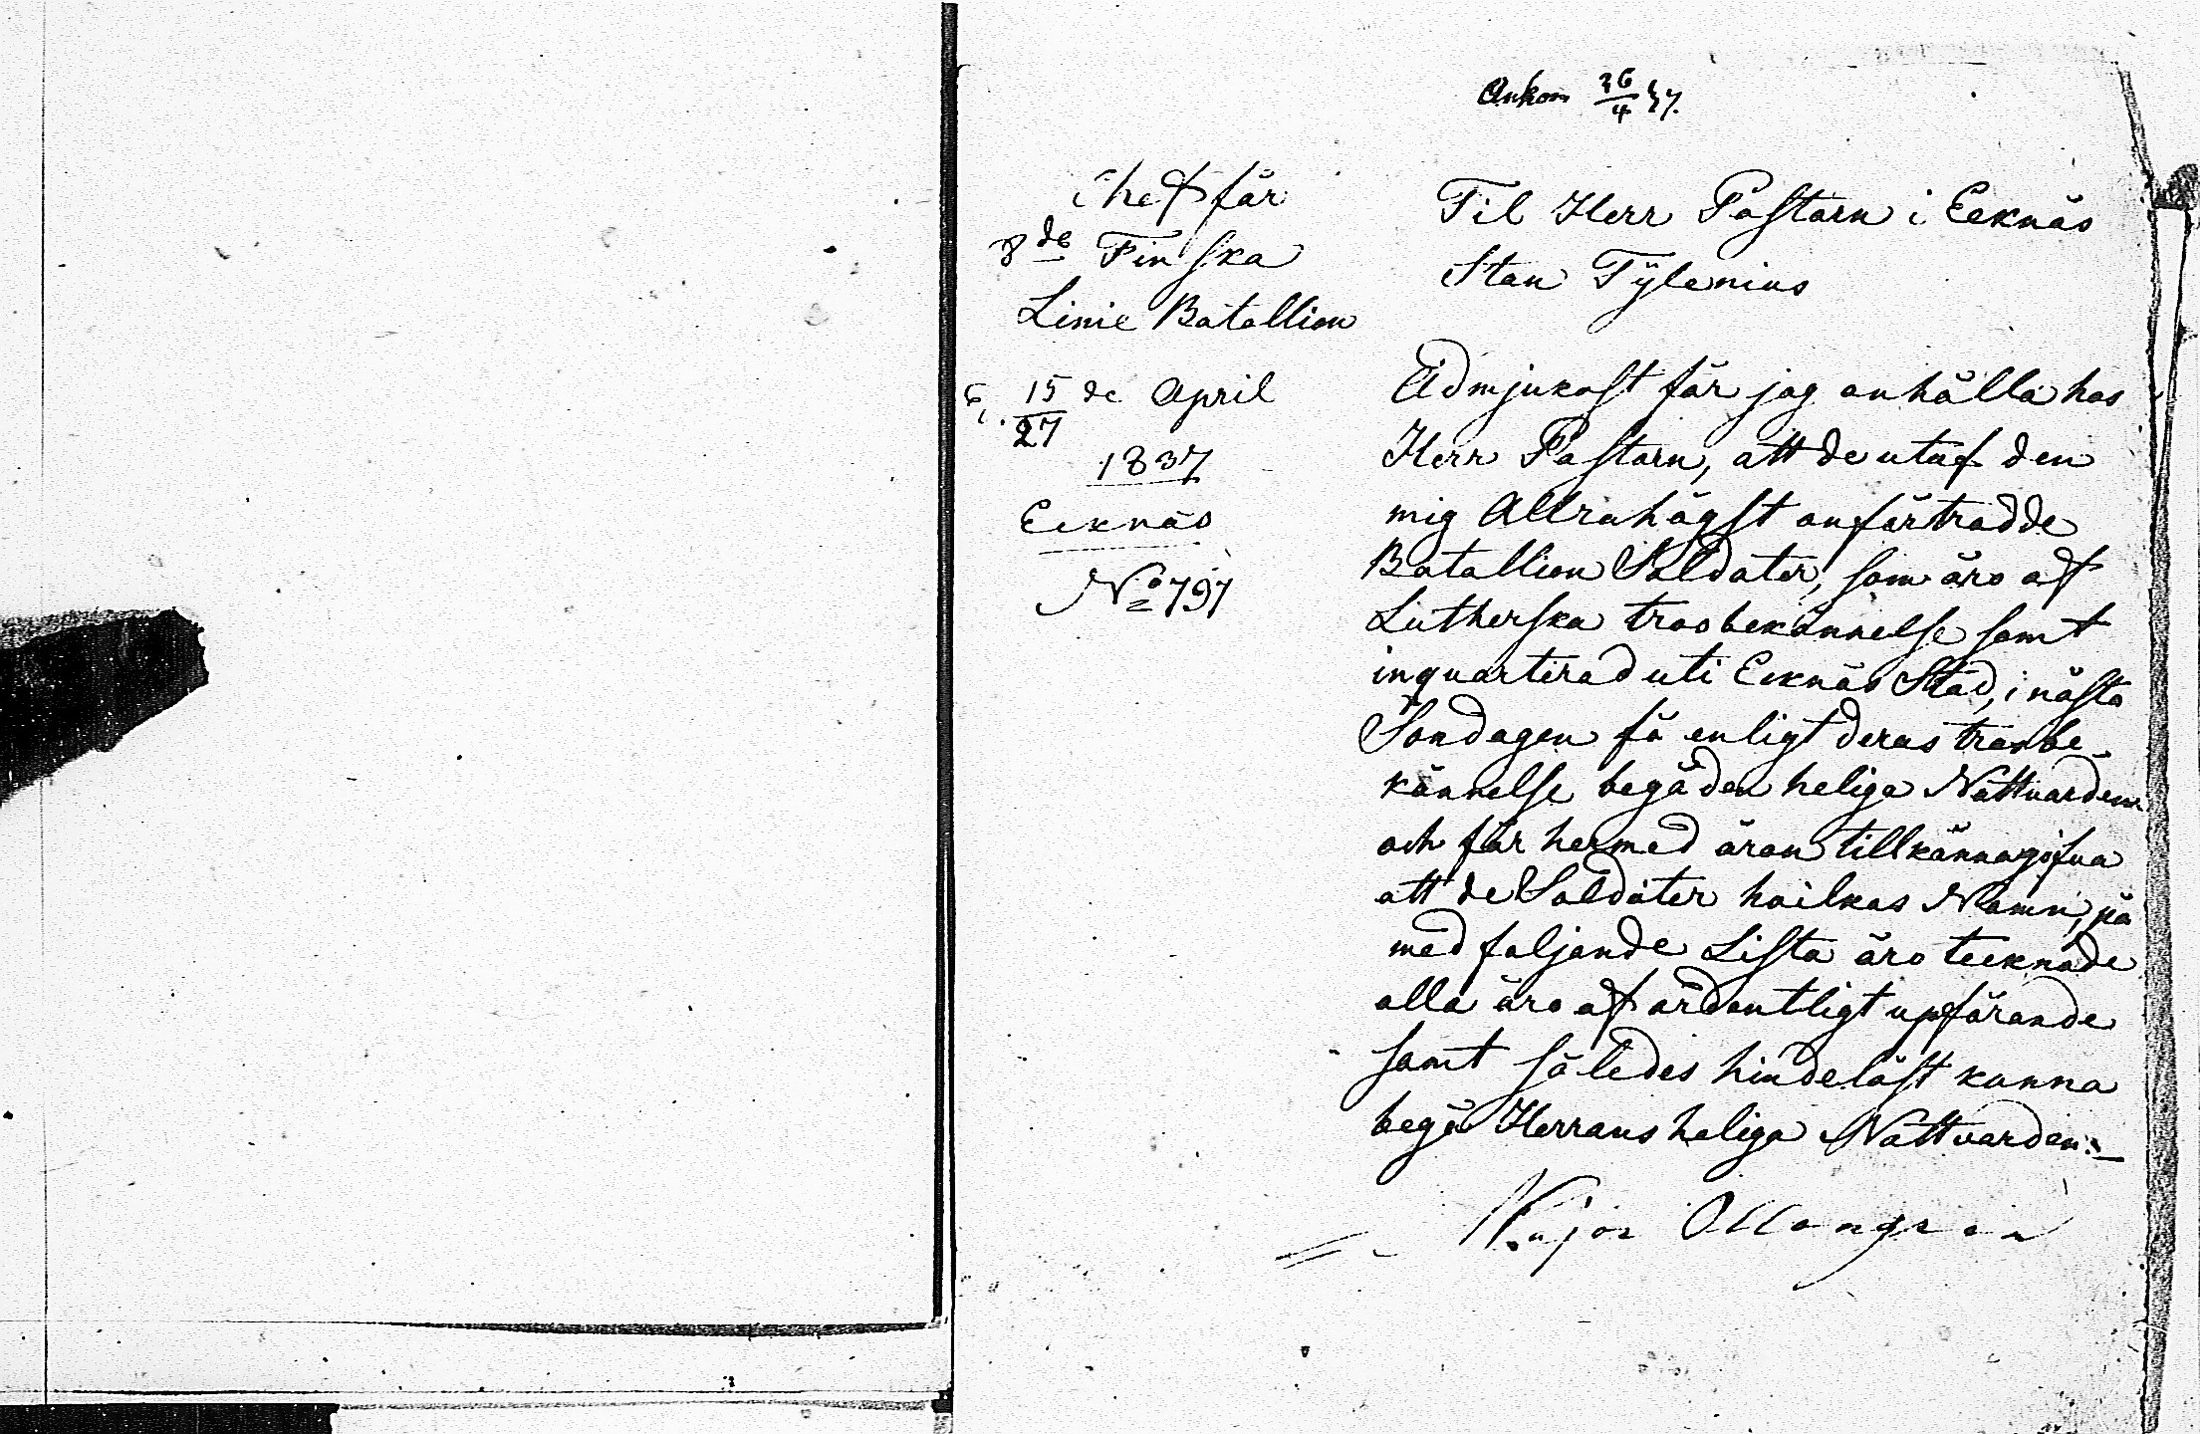 Ankom 26/4 37.
Chef för
8de Finska
Linie Batallion
15/27 de April
1837
Eeknäs
No 797
Til Herr Pastorn i Eeknäs
Stan Tylenius
Ödmjukast får jag anhålla hos
Herr Pastorn, att de utaf den
mig Allrahögst anförtrodde
Batallion Soldater, som äro af
Lutherska trosbekännelse samt
inquartirad uti Eeknäs Stad, i nästa
Söndagen få enligt deras trosbe-
kännelse begå den heliga Nattvarden
och får hermed äran tillkännagifva
att de Soldater hvilkas Namn, på
medfoljande Lista äro tecknade
alla äro af ordentligt upförande
samt således hindelöst kunna
begå Herrans heliga Nattvarden.
Major